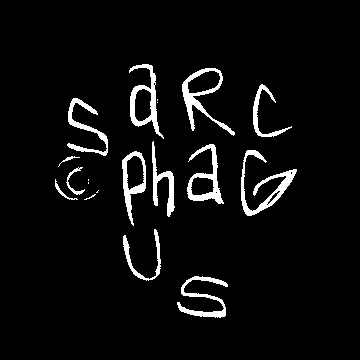 saRc
©phaG
US